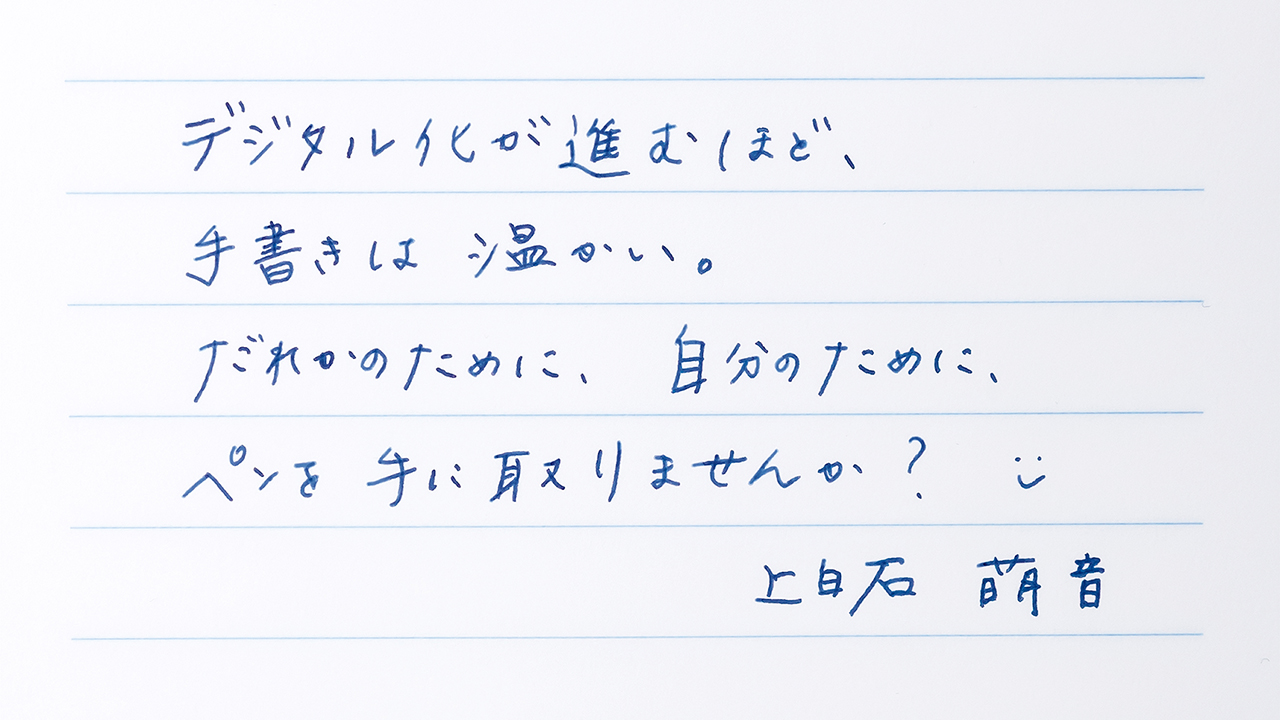 デジタル化が進むほど、
手書きは 温かい。
だれかのために、 自分のために、
ペンを 手に取りませんか？ ü
上白石 萌音